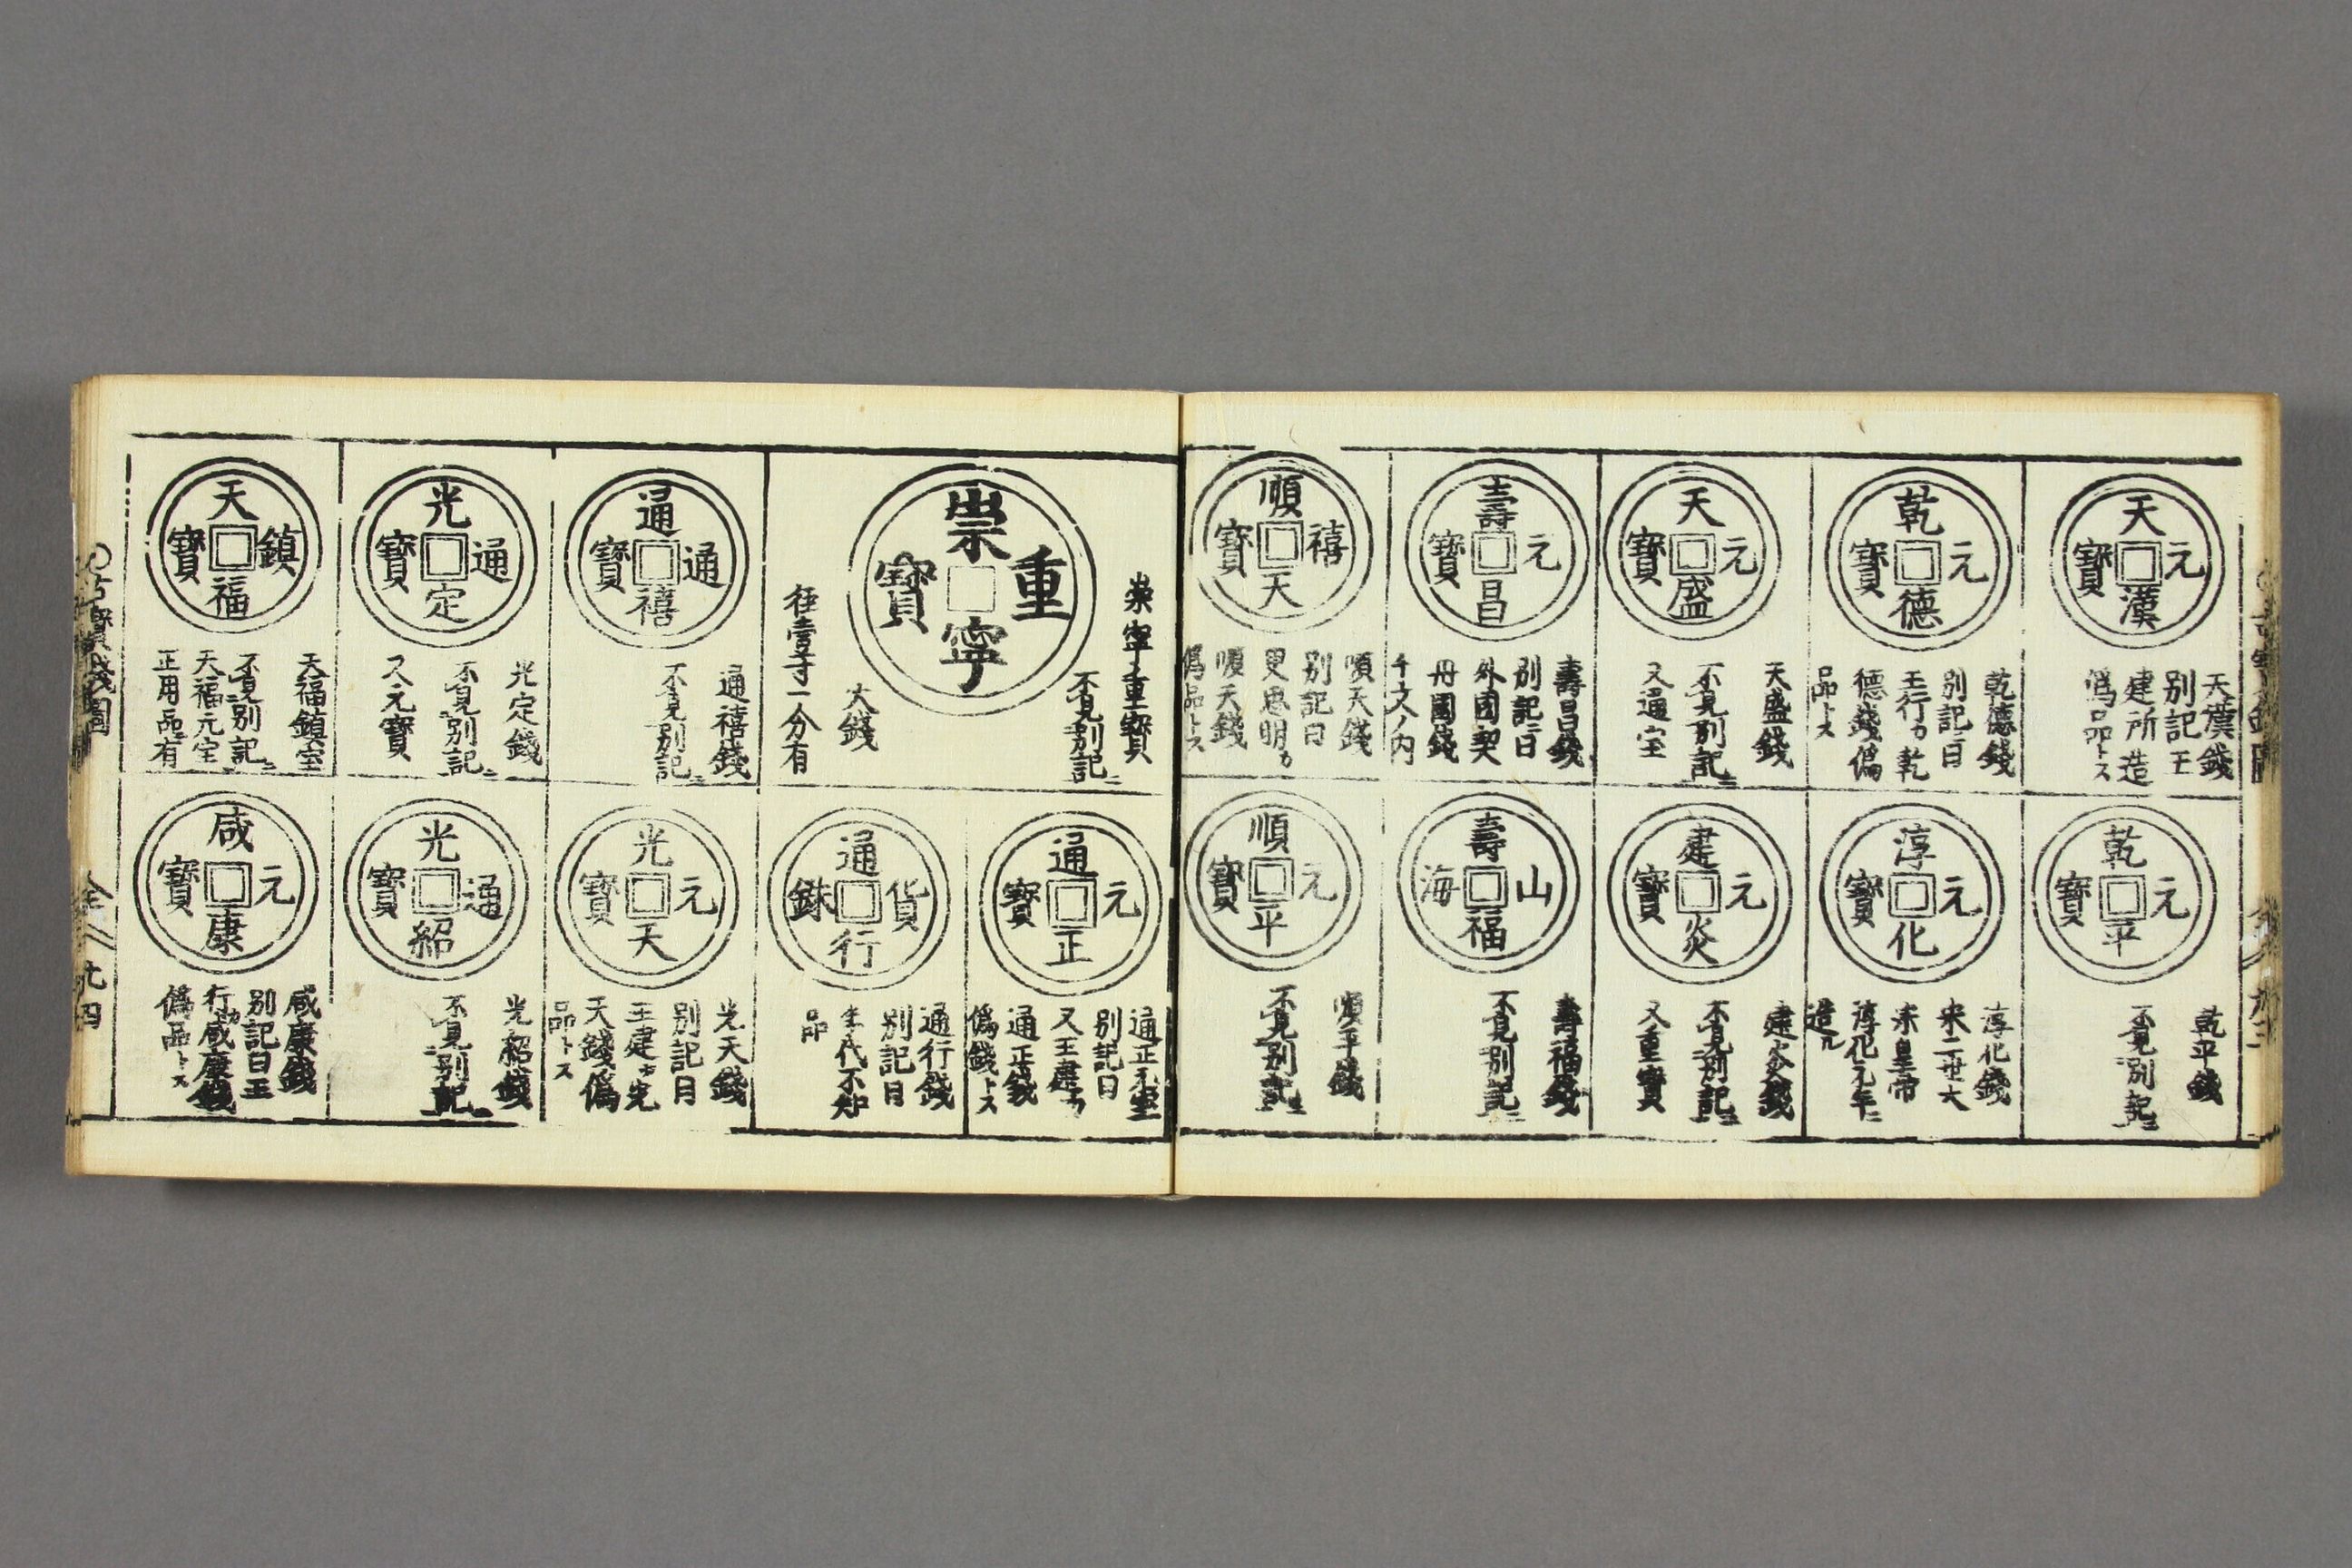 天漢元寶
天漢錢
別記王
建所造
偽品トス
乾平元寶
乾平錢
不見別記ニ
乾德元寶
乾德錢
別記ニ曰
王行カ乾
德錢偽
品トス
淳化元寶
淳化錢
宋二世大
宋皇帝
淳化元年ニ
造ル
天盛元寶
天盛錢
不見別記ニ
又通宝
建炎元寶
建炎錢
不見別記ニ
又重寶
壽昌元寶
壽昌錢
別記ニ曰
外國契
丹國錢
千文ノ内
壽福山海
壽福錢
不見別記ニ
順天禧寶
順天錢
別記曰
思明カ
順天錢
偽品トス
順平元寶
順平錢
不見別記ニ
崇寧重寶
崇寧重寶
不見別記ニ
大錢
径壹寸一分有
通正元寶
通正元宝
別記曰
又王建カ
通正錢
偽錢トス
通行貨銖
通行錢
別記曰
年代不知
品
通禧通寶
通禧錢
不見別記ニ
光天元寶
光天錢
別記曰
王建カ光
天錢偽
品トス
光定通寶
光定錢
不見別記ニ
又元寶
光紹通寶
光紹錢
不見別記ニ
天福鎮寶
天福鎮宝
不見別記ニ
天福元宝
正用品ニ有
咸康元寶
咸康錢
別記曰王
行カ咸康錢
偽品トス
古寳錢圖
全
九四